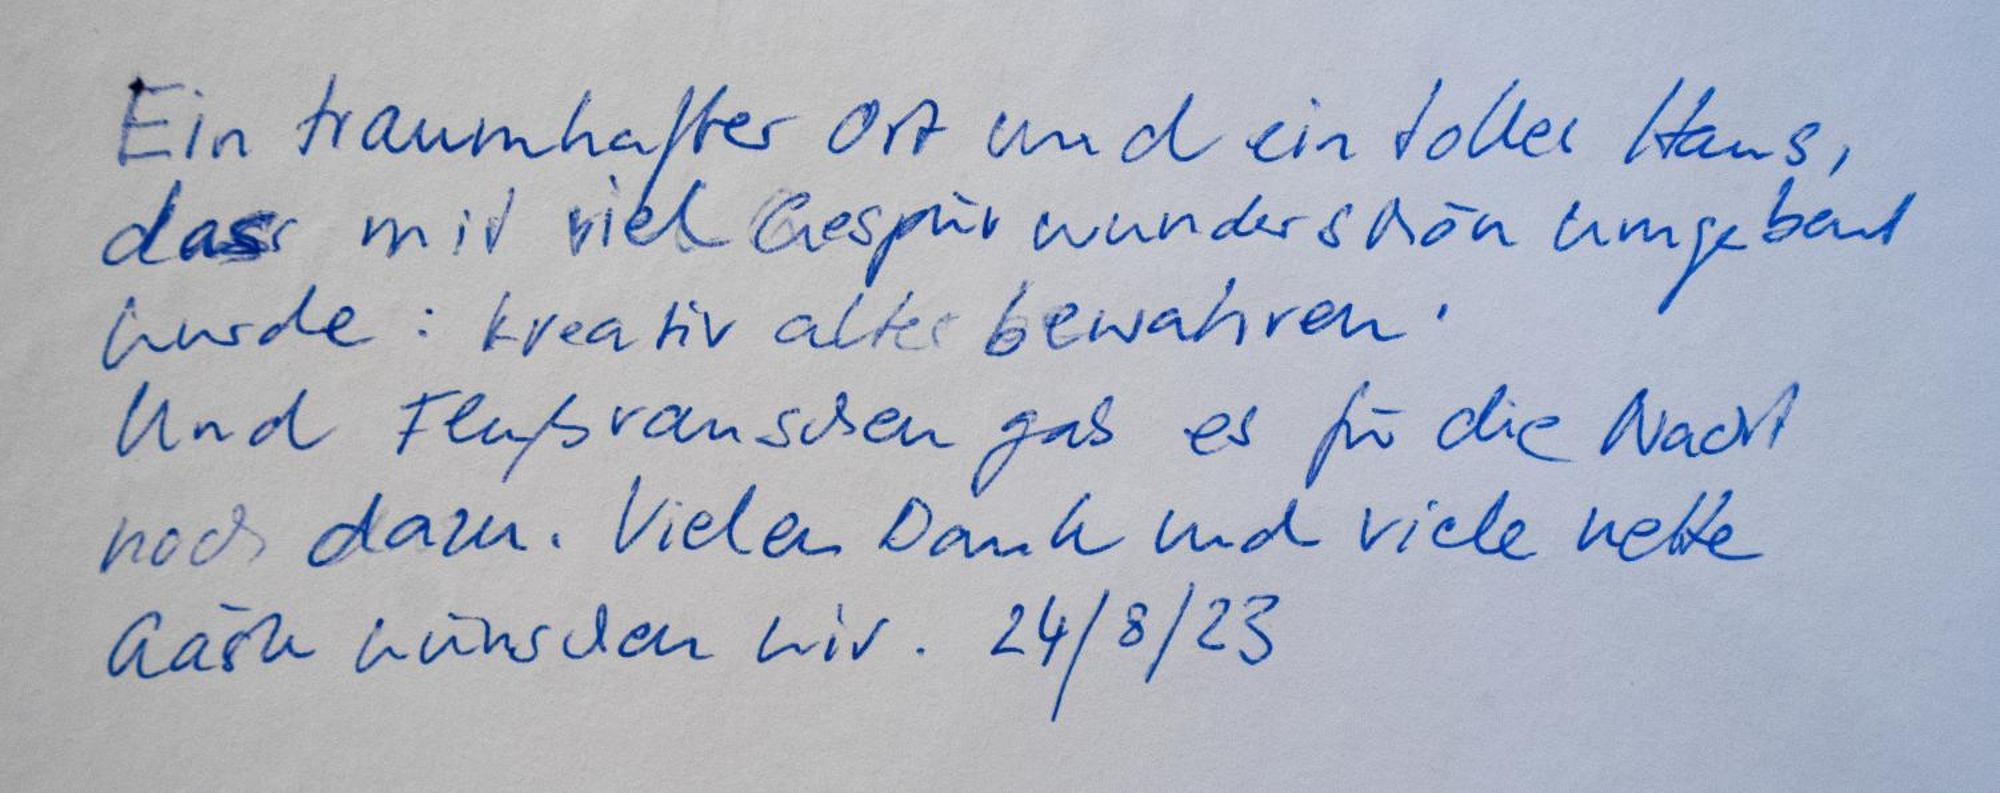 Ein traumhafter Ort und ein tolles Haus,
dass mit viel Gespür wunderschön umgebaut
wurde: kreativ altes bewahren.
Und Flußrauschen gab es für die Nacht
noch dazu. Vielen Dank und viele nette
Gäste wünschen wir. 24/8/23